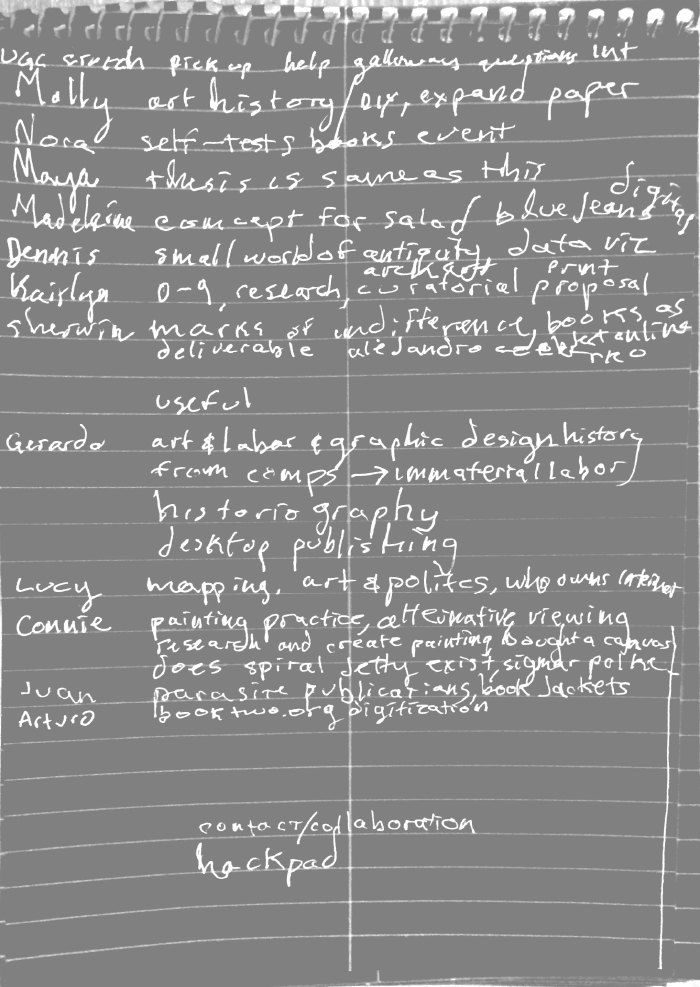 pick up help galloways questions int
Molly art history/DIY, expand paper
Nora self-tests books event
Maya thesis is same as this
Madeleine concept for salad blue jeans digital
Dennis small world of antiquity data viz
Kaitlyn 0-9, research, curatorial proposal print
Sherwin marks of indifference, books as object online
deliverable alejandro
useful
Gerardo art & labor & graphic design history
from comps → immaterial labor
historiography
desktop publishing
Lucy mapping, art & politcs, who owns internet
Connie painting practice, alternative viewing
research and create painting bought a canvas
does spiral jetty exist, sigmar polke
Juan parasite publications, book jackets
Arturo booktwo.org digitization
contact/collaboration
hackpad